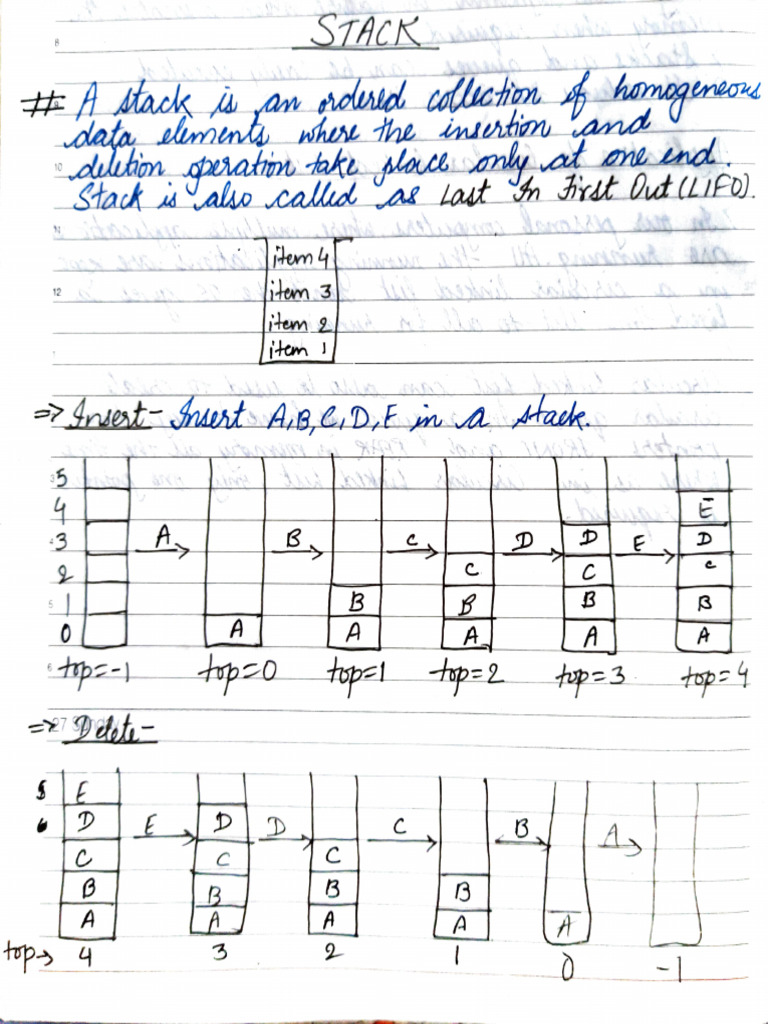 STACK
# A stack is an ordered collection of homogeneous
data elements where the insertion and
deletion operation take place only at one end.
Stack is also called as Last In First Out (LIFO).
item 4
item 3
item 2
item 1
=> Insert - Insert A, B, C, D, E in a stack.
5
4 E
3 A B C D D E D
2 C C C
1 B B B B
0 A A A A A
top=-1 top=0 top=1 top=2 top=3 top=4
=> Delete -
E
D E D D C B A
C C C
B B B B
A A A A A
top→ 4 3 2 1 0 -1